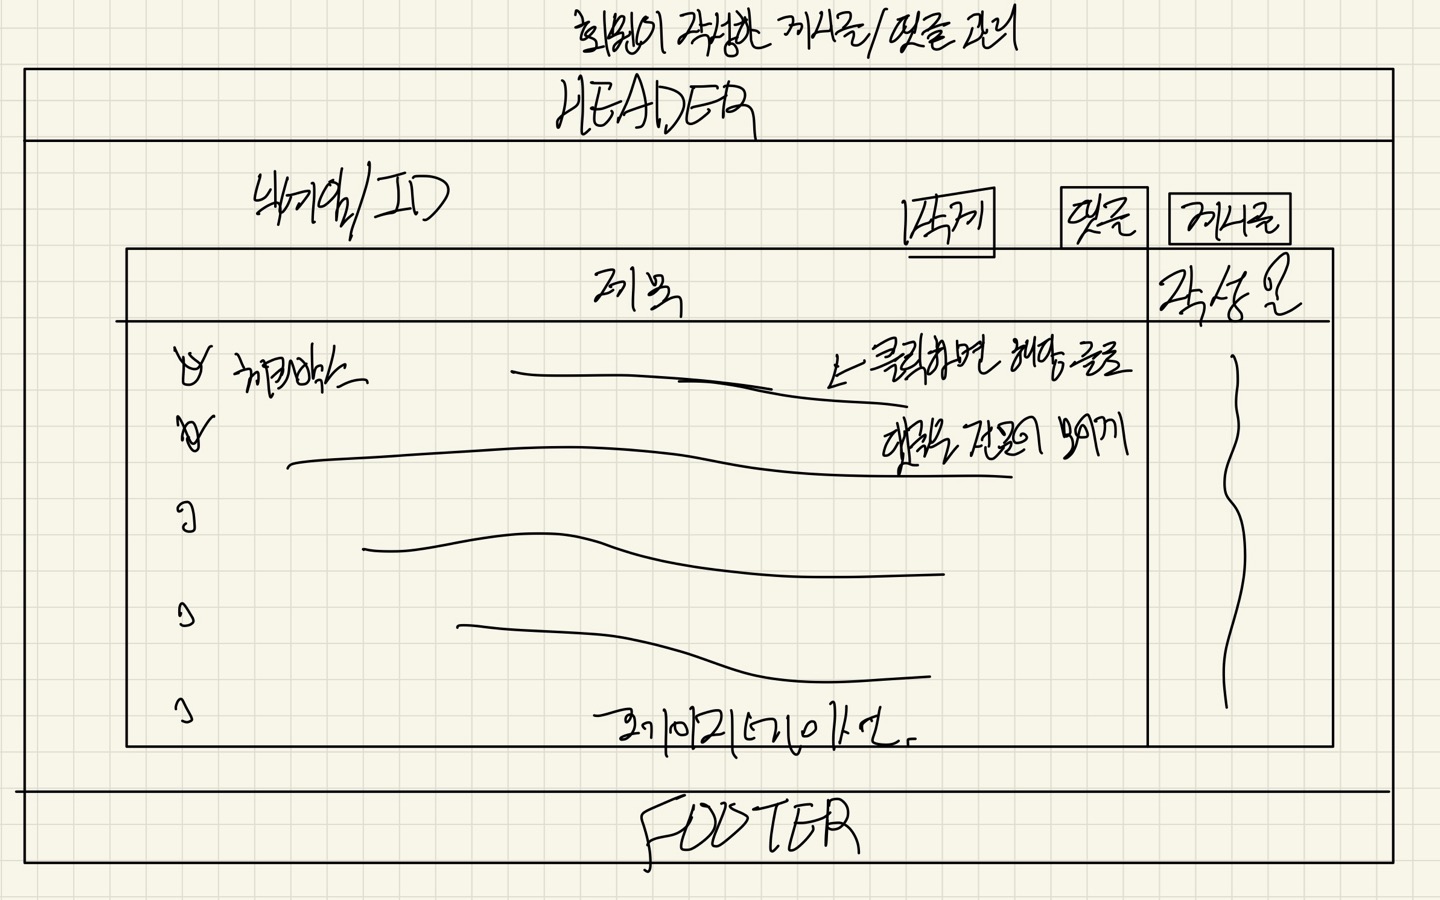 회원이 작성한 게시글/댓글 관리
HEADER
닉네임/ID
삭제
댓글
게시글
제목
작성일
체크박스
← 클릭하면 해당 글로
전환이 되게
페이지네이션
FOOTER